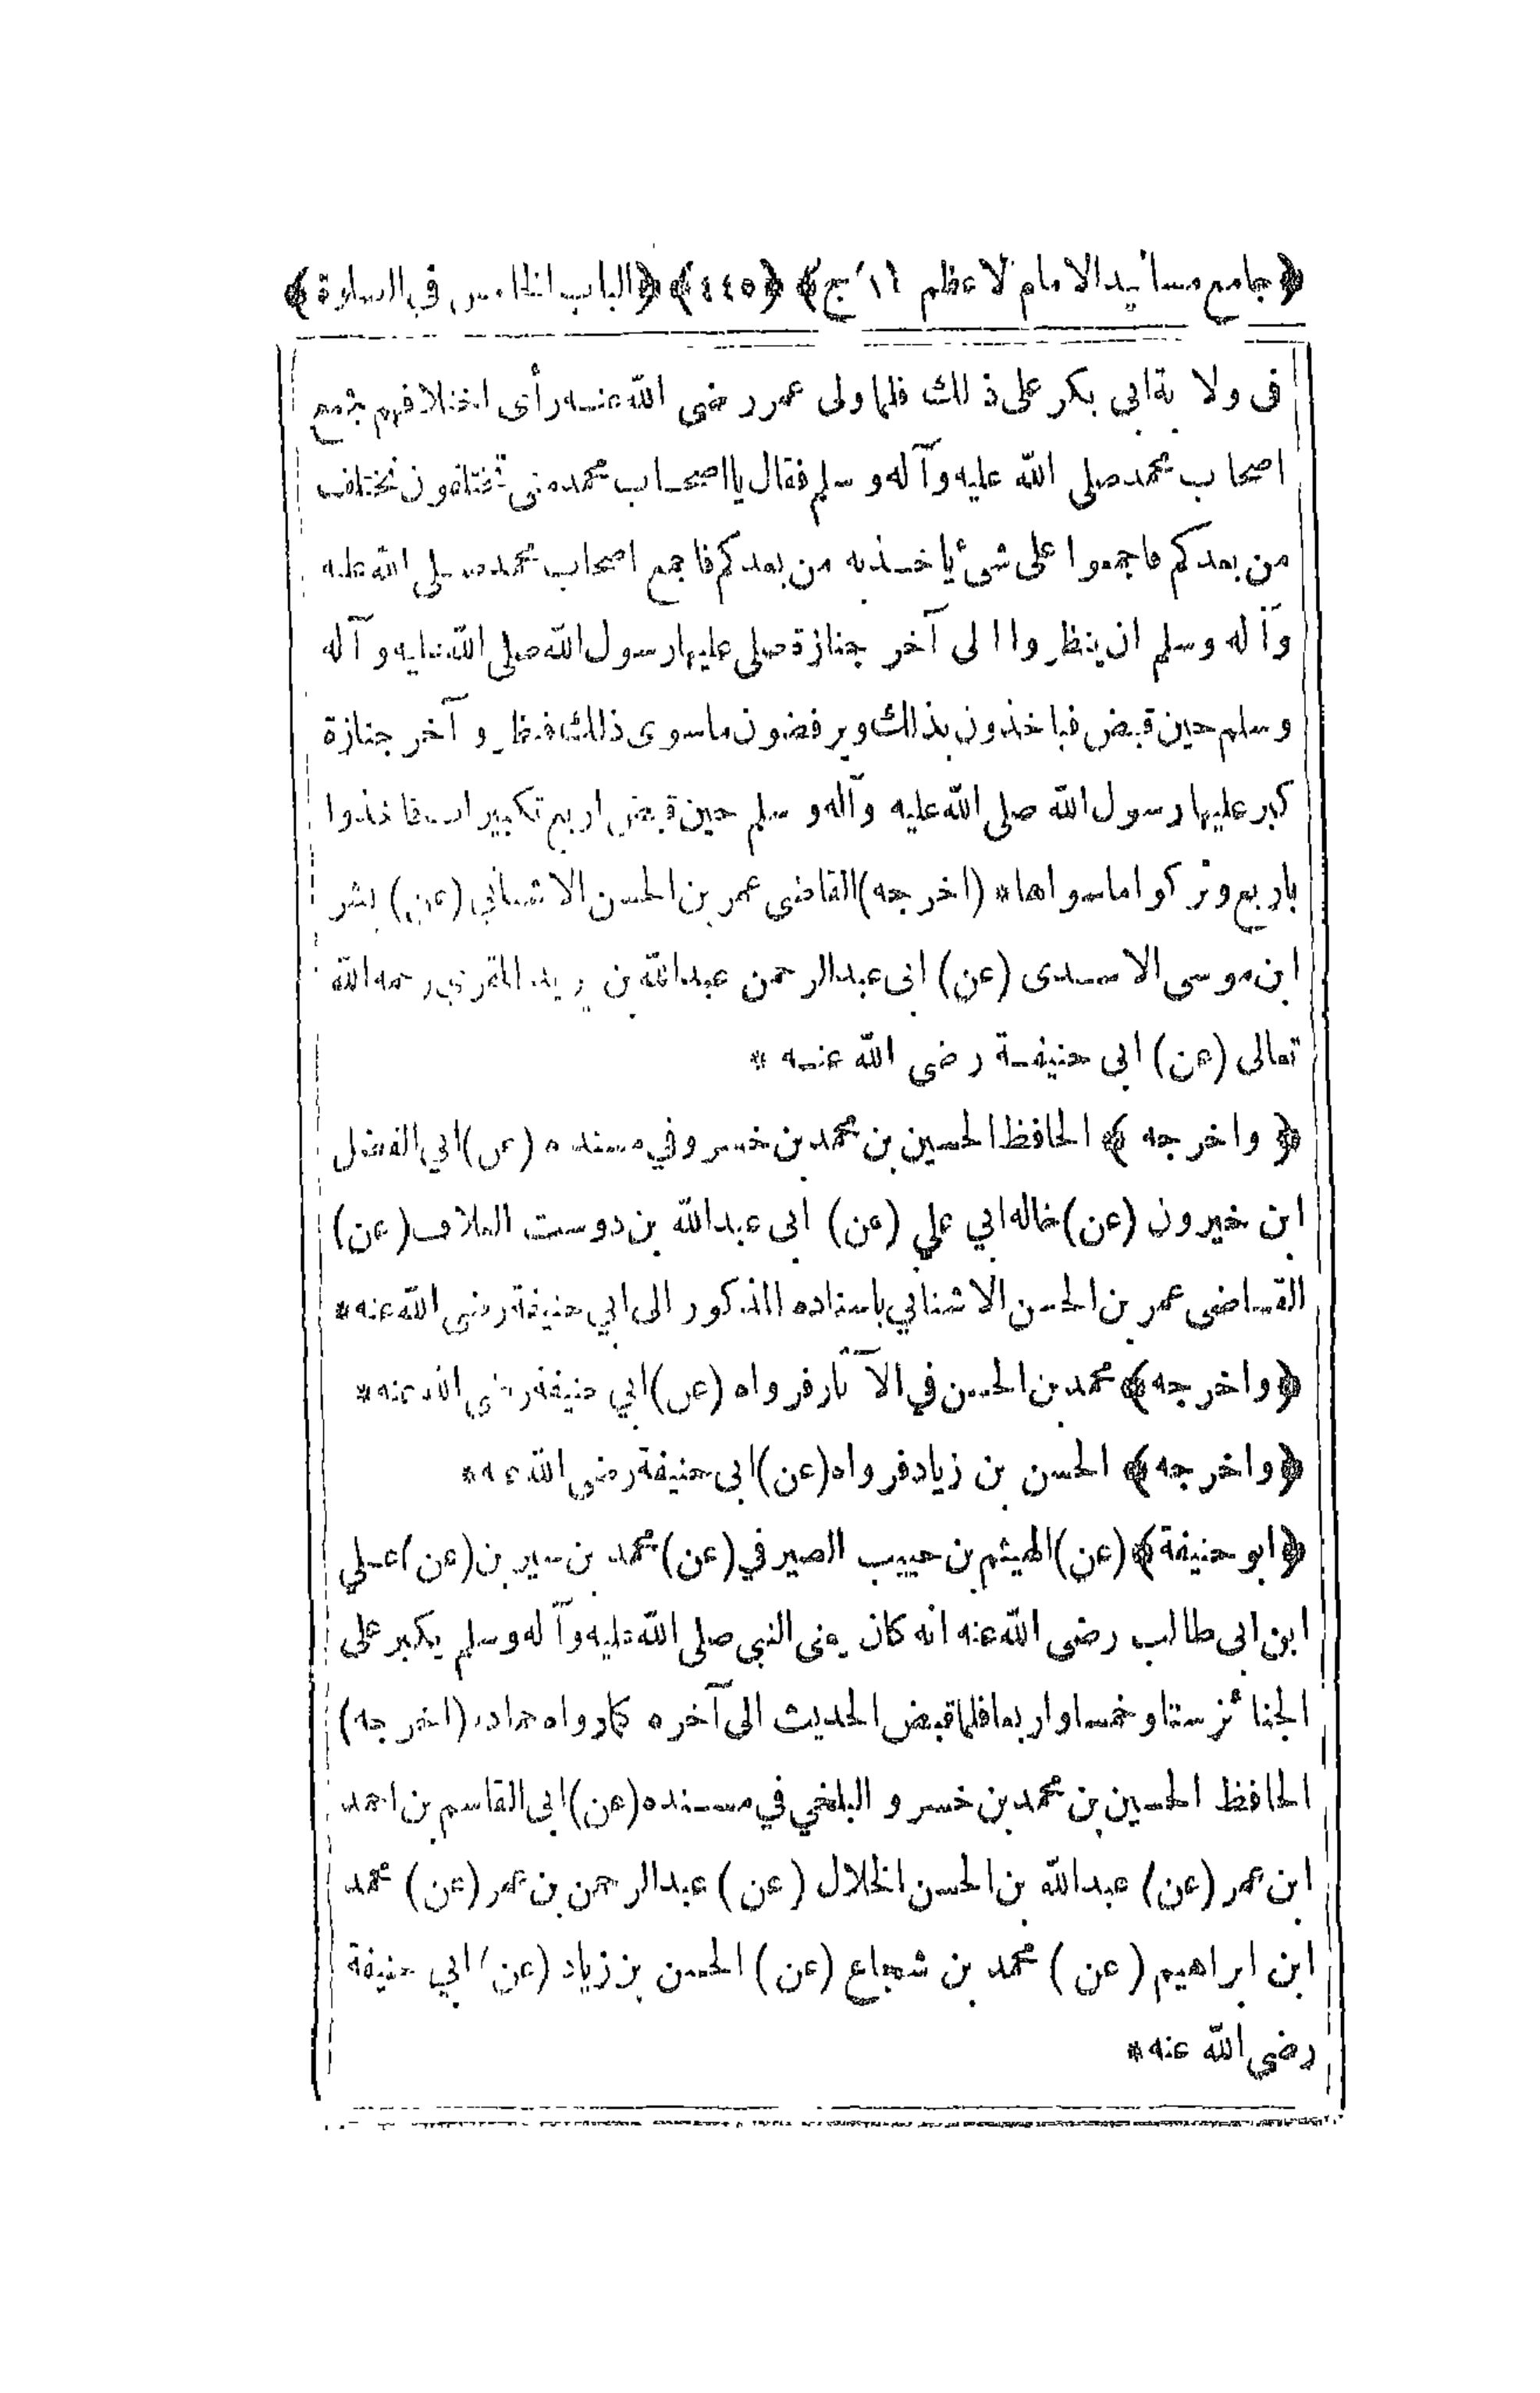 ﴿جامع مسانيد الامام الاعظم ج﴾ ﴿٤٤٥﴾ ﴿الباب الخامس في الصلوة﴾
في ولاية ابي بكر على ذلك فلما ولى عمر رضى الله عنه رأى اختلافهم فجمع
اصحاب محمد صلى الله عليه وآله وسلم فقال يا اصحاب محمد متى تختلفون يختلف
من بعدكم فاجمعوا على شئ يأخذ به من بعدكم فاجمع اصحاب محمد صلى الله عليه
وآله وسلم ان ينظروا الى آخر جنازة صلى عليها رسول الله صلى الله عليه وآله
وسلم حين قبض فياخذون بذلك ويرفضون ما سوى ذلك فنظروا آخر جنازة
كبر عليها رسول الله صلى الله عليه وآله وسلم حين قبض اربع تكبيرات فاخذوا
باربع وتركوا ما سواها* (اخرجه) القاضى عمر بن الحسن الاشناني (عن) بشر
ابن موسى الاسدى (عن) ابى عبد الرحمن عبد الله بن يزيد المقرى رحمه الله
تعالى (عن) ابى حنيفة رضى الله عنه *
﴿واخرجه﴾ الحافظ الحسين بن محمد بن خسرو في مسنده (عن) ابي الفضل
ابن خيرون (عن) خاله ابي علي (عن) ابى عبد الله بن دوست العلاف (عن)
القاضى عمر بن الحسن الاشناني باسناده المذكور الى ابي حنيفة رضى الله عنه*
﴿واخرجه﴾ محمد بن الحسن في الآثار فرواه (عن) ابي حنيفة رضى الله عنه*
﴿واخرجه﴾ الحسن بن زياد فرواه (عن) ابى حنيفة رضى الله عنه*
﴿ابو حنيفة﴾ (عن) الهيثم بن حبيب الصيرفي (عن) محمد بن سيرين (عن) علي
ابن ابى طالب رضى الله عنه انه كان يعنى النبي صلى الله عليه وآله وسلم يكبر على
الجنائز ستا وخمسا واربعا فلما قبض الحديث الى آخره كما رواه حماد* (اخرجه)
الحافظ الحسين بن محمد بن خسرو البلخي في مسنده (عن) ابى القاسم بن احمد
ابن عمر (عن) عبد الله بن الحسن الخلال (عن) عبد الرحمن بن عمر (عن) محمد
ابن ابراهيم (عن) محمد بن شجاع (عن) الحسن بن زياد (عن) ابي حنيفة
رضي الله عنه*